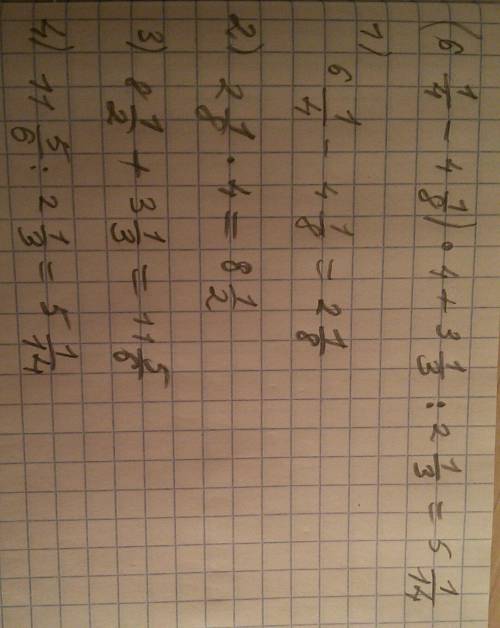 (6 1/4 − 4 1/8) · 4 + 3 1/3 : 2 1/3 = 5 1/14
1)
6 1/4 − 4 1/8 = 2 1/8
2) 2 1/8 · 4 = 8 1/2
3) 8 1/2 + 3 1/3 = 11 5/6
4) 11 5/6 : 2 1/3 = 5 1/14